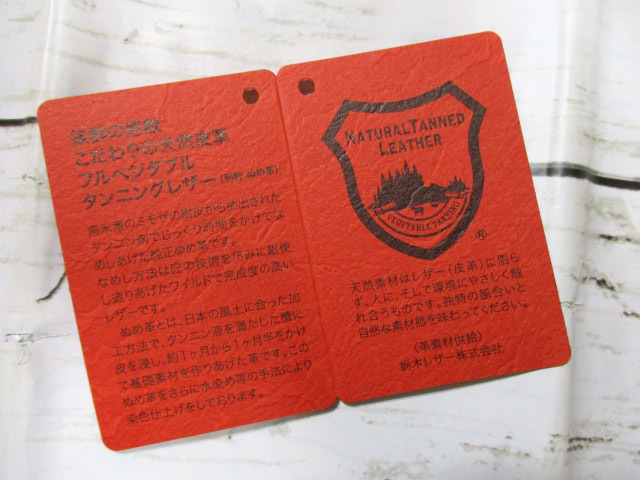 抜群の感触
こだわりの天然皮革
フルベジタブル
タンニングレザー(別称 ぬめ革)
南米産のミモザの樹皮から抽出された
タンニン剤でじっくり時間をかけてな
めしあげた純正ぬめ革です。
なめし方法は匠の技術を巧みに駆使
し造りあげたワイルドで完成度の高い
レザーです。
ぬめ革とは、日本の風土に合った加
工方法で、タンニン液を満たした槽に
皮を浸し、約1ヶ月から1ヶ月半をかけ
て基礎素材を作りあげた革です。この
ぬめ革をさらに水染め等の手法により
染色仕上げをしております。
NATURAL TANNED
LEATHER
VEGETABLE TANNING
®
天然素材はレザー(皮革)に限ら
ず、人に、そして環境にやさしく触
れ合うものです。独特の風合いと
自然な素材感を味わってください。
〈革素材供給〉
栃木レザー株式会社